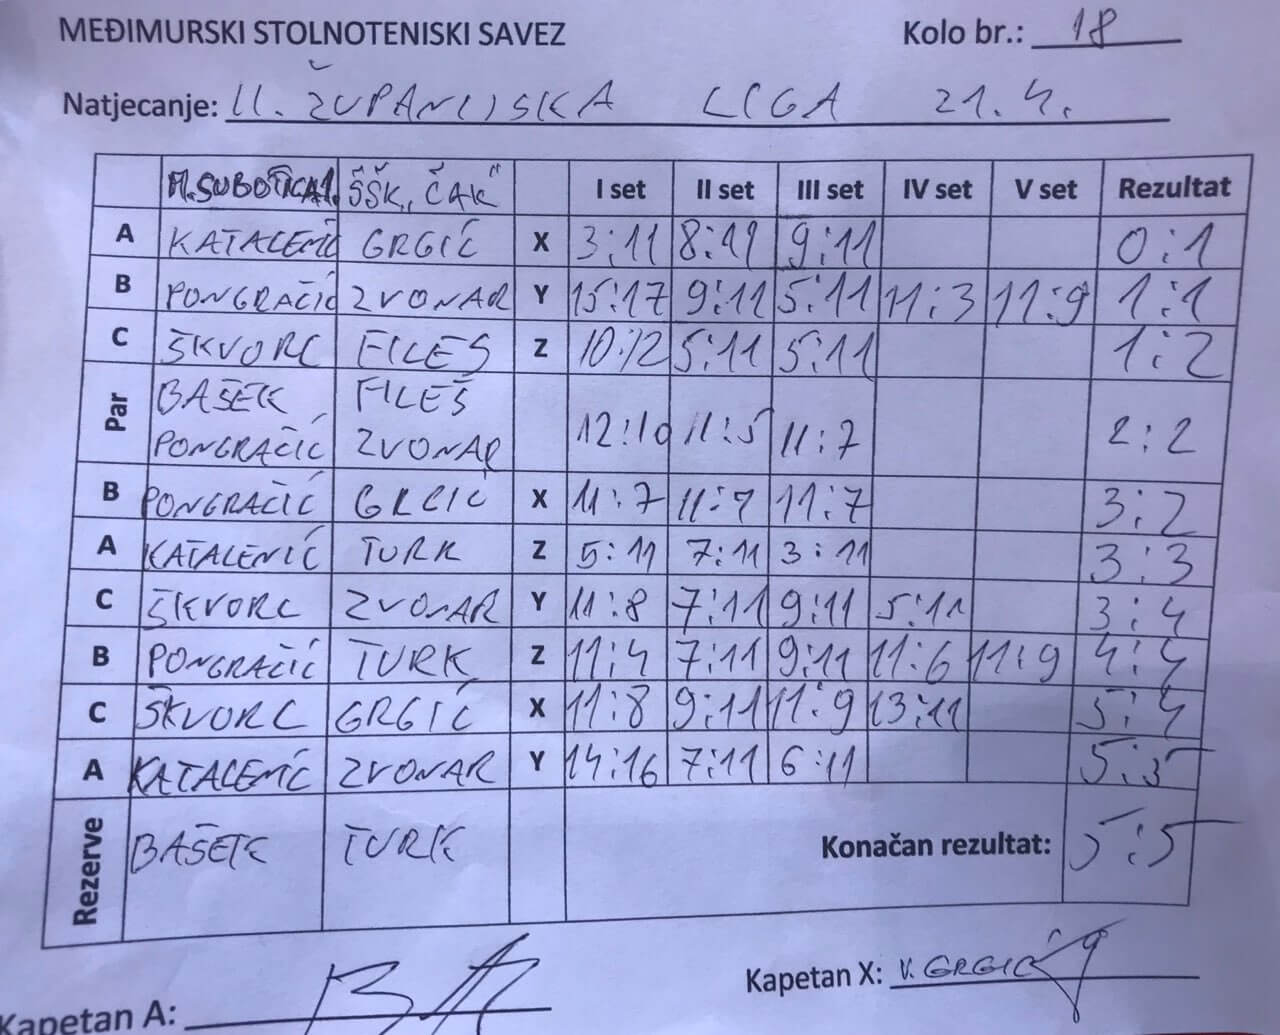 MEĐIMURSKI STOLNOTENISKI SAVEZ Kolo br.: 18
Natjecanje: II. ŽUPANIJSKA LIGA 21.4.
M.SUBOTICA1. ŠŠK„ČAK" I set II set III set IV set V set Rezultat
A KATALENIĆ GRGIĆ X 3:11 8:11 9:11 0:1
B PONGRAČIĆ ZVONAR Y 15:17 9:11 5:11 11:3 11:9 1:1
C ŠKVORC FILEŠ Z 10:12 5:11 5:11 1:2
Par BAŠEK, FILEŠ
PONGRAČIĆ ZVONAR 12:10 11:5 11:7 2:2
B PONGRAČIĆ GRGIĆ X 11:7 11:7 11:7 3:2
A KATALENIĆ TURK Z 5:11 7:11 3:11 3:3
C ŠKVORC ZVONAR Y 11:8 7:11 9:11 5:11 3:4
B PONGRAČIĆ TURK Z 11:4 7:11 9:11 11:6 11:9 4:4
C ŠKVORC GRGIĆ X 11:8 9:11 11:9 13:11 5:4
A KATALENIĆ ZVONAR Y 14:16 7:11 6:11 5:5
Rezerve BAŠEK TURK Konačan rezultat: 5:5
Kapetan A: Kapetan X: V. GRGIĆ